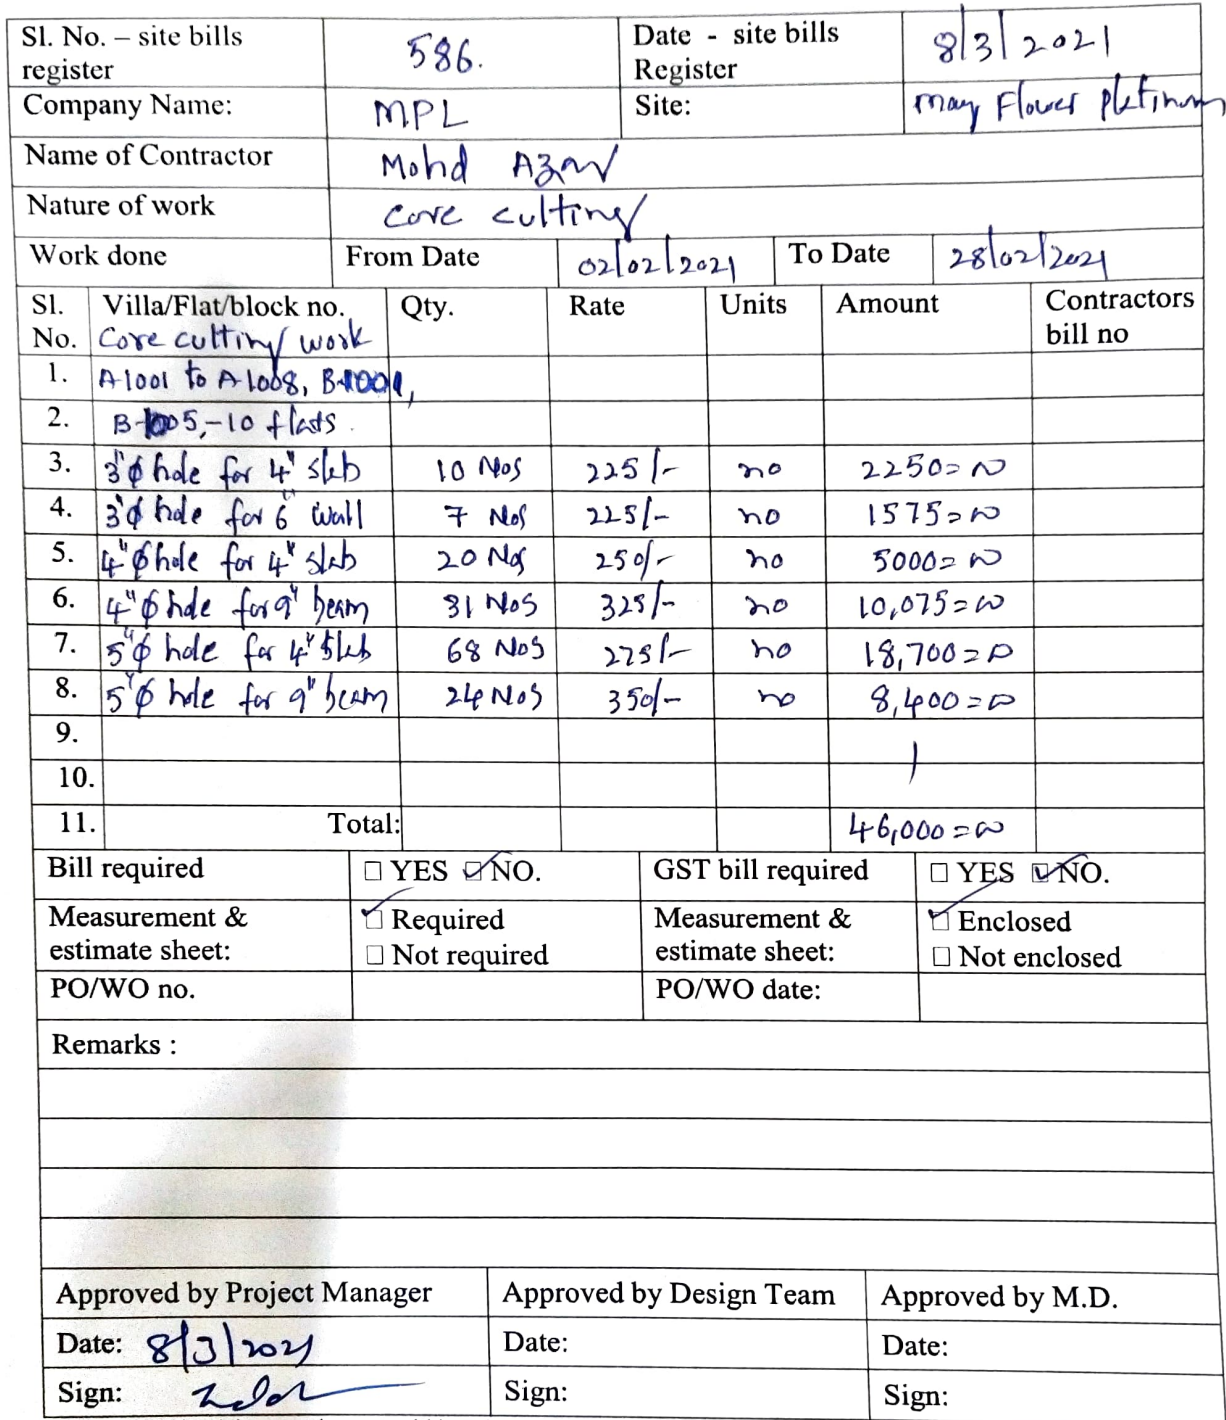 Sl. No. – site bills register 586. Date - site bills Register 8/3/2021
Company Name: MPL Site: May Flower Platinum
Name of Contractor Mohd Azar
Nature of work Core cutting
Work done From Date 02/02/2021 To Date 28/02/2021
Sl. No. Villa/Flat/block no. Qty. Rate Units Amount Contractors bill no
Core cutting work
1. A-1001 to A-1008, B-1001,
2. B-1005,-10 flats.
3. 3"φ hole for 4" slab 10 Nos 225/- no 2250=00
4. 3"φ hole for 6" wall 7 Nos 225/- no 1575=00
5. 4"φ hole for 4" slab 20 Nos 250/- no 5000=00
6. 4"φ hole for 9" beam 31 Nos 325/- no 10,075=00
7. 5"φ hole for 4" slab 68 Nos 275/- no 18,700=00
8. 5"φ hole for 9" beam 24 Nos 350/- no 8,400=00
9.
10.
11. Total: 46,000=00
Bill required ☐ YES ☑ NO. GST bill required ☐ YES ☑ NO.
Measurement & estimate sheet: ☑ Required Measurement & estimate sheet: ☑ Enclosed
☐ Not required ☐ Not enclosed
PO/WO no. PO/WO date:
Remarks :
Approved by Project Manager Approved by Design Team Approved by M.D.
Date: 8/3/2021 Date: Date:
Sign: Sign: Sign: